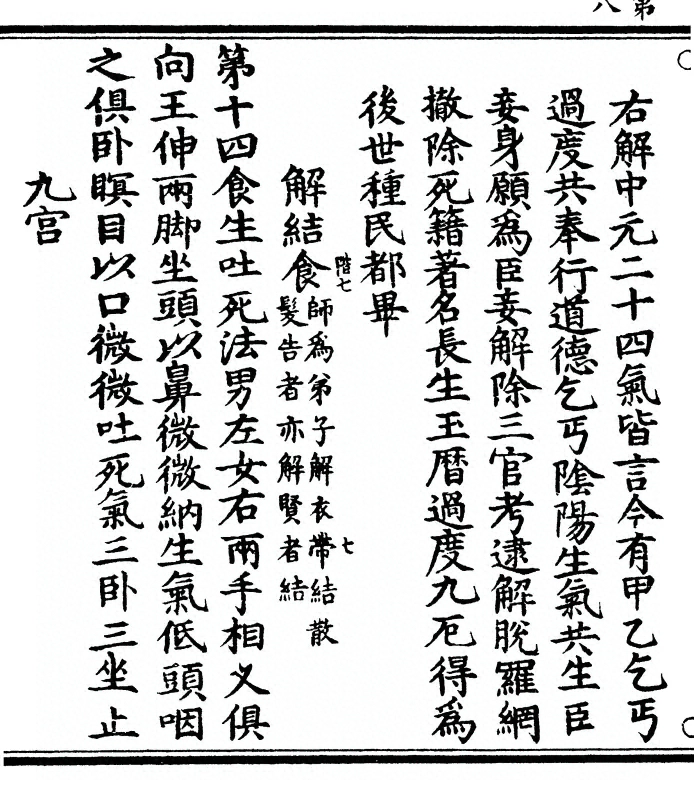 第
八
右解中元二十四氣皆言今有甲乙乞丐
過度共奉行道德乞丐陰陽生氣共生臣
妾身願爲臣妾解除三官考逮解脫羅網
撤除死籍著名長生玉曆過度九厄得爲
後世種民都畢
解結食
階七
師爲弟子解衣帶結散
七
髮告者亦解賢者結
第十四食生吐死法男左女右兩手相义俱
向王伸兩脚坐頭以鼻微微納生氣低頭咽
之俱卧瞑目以口微微吐死氣三卧三坐止
九宮